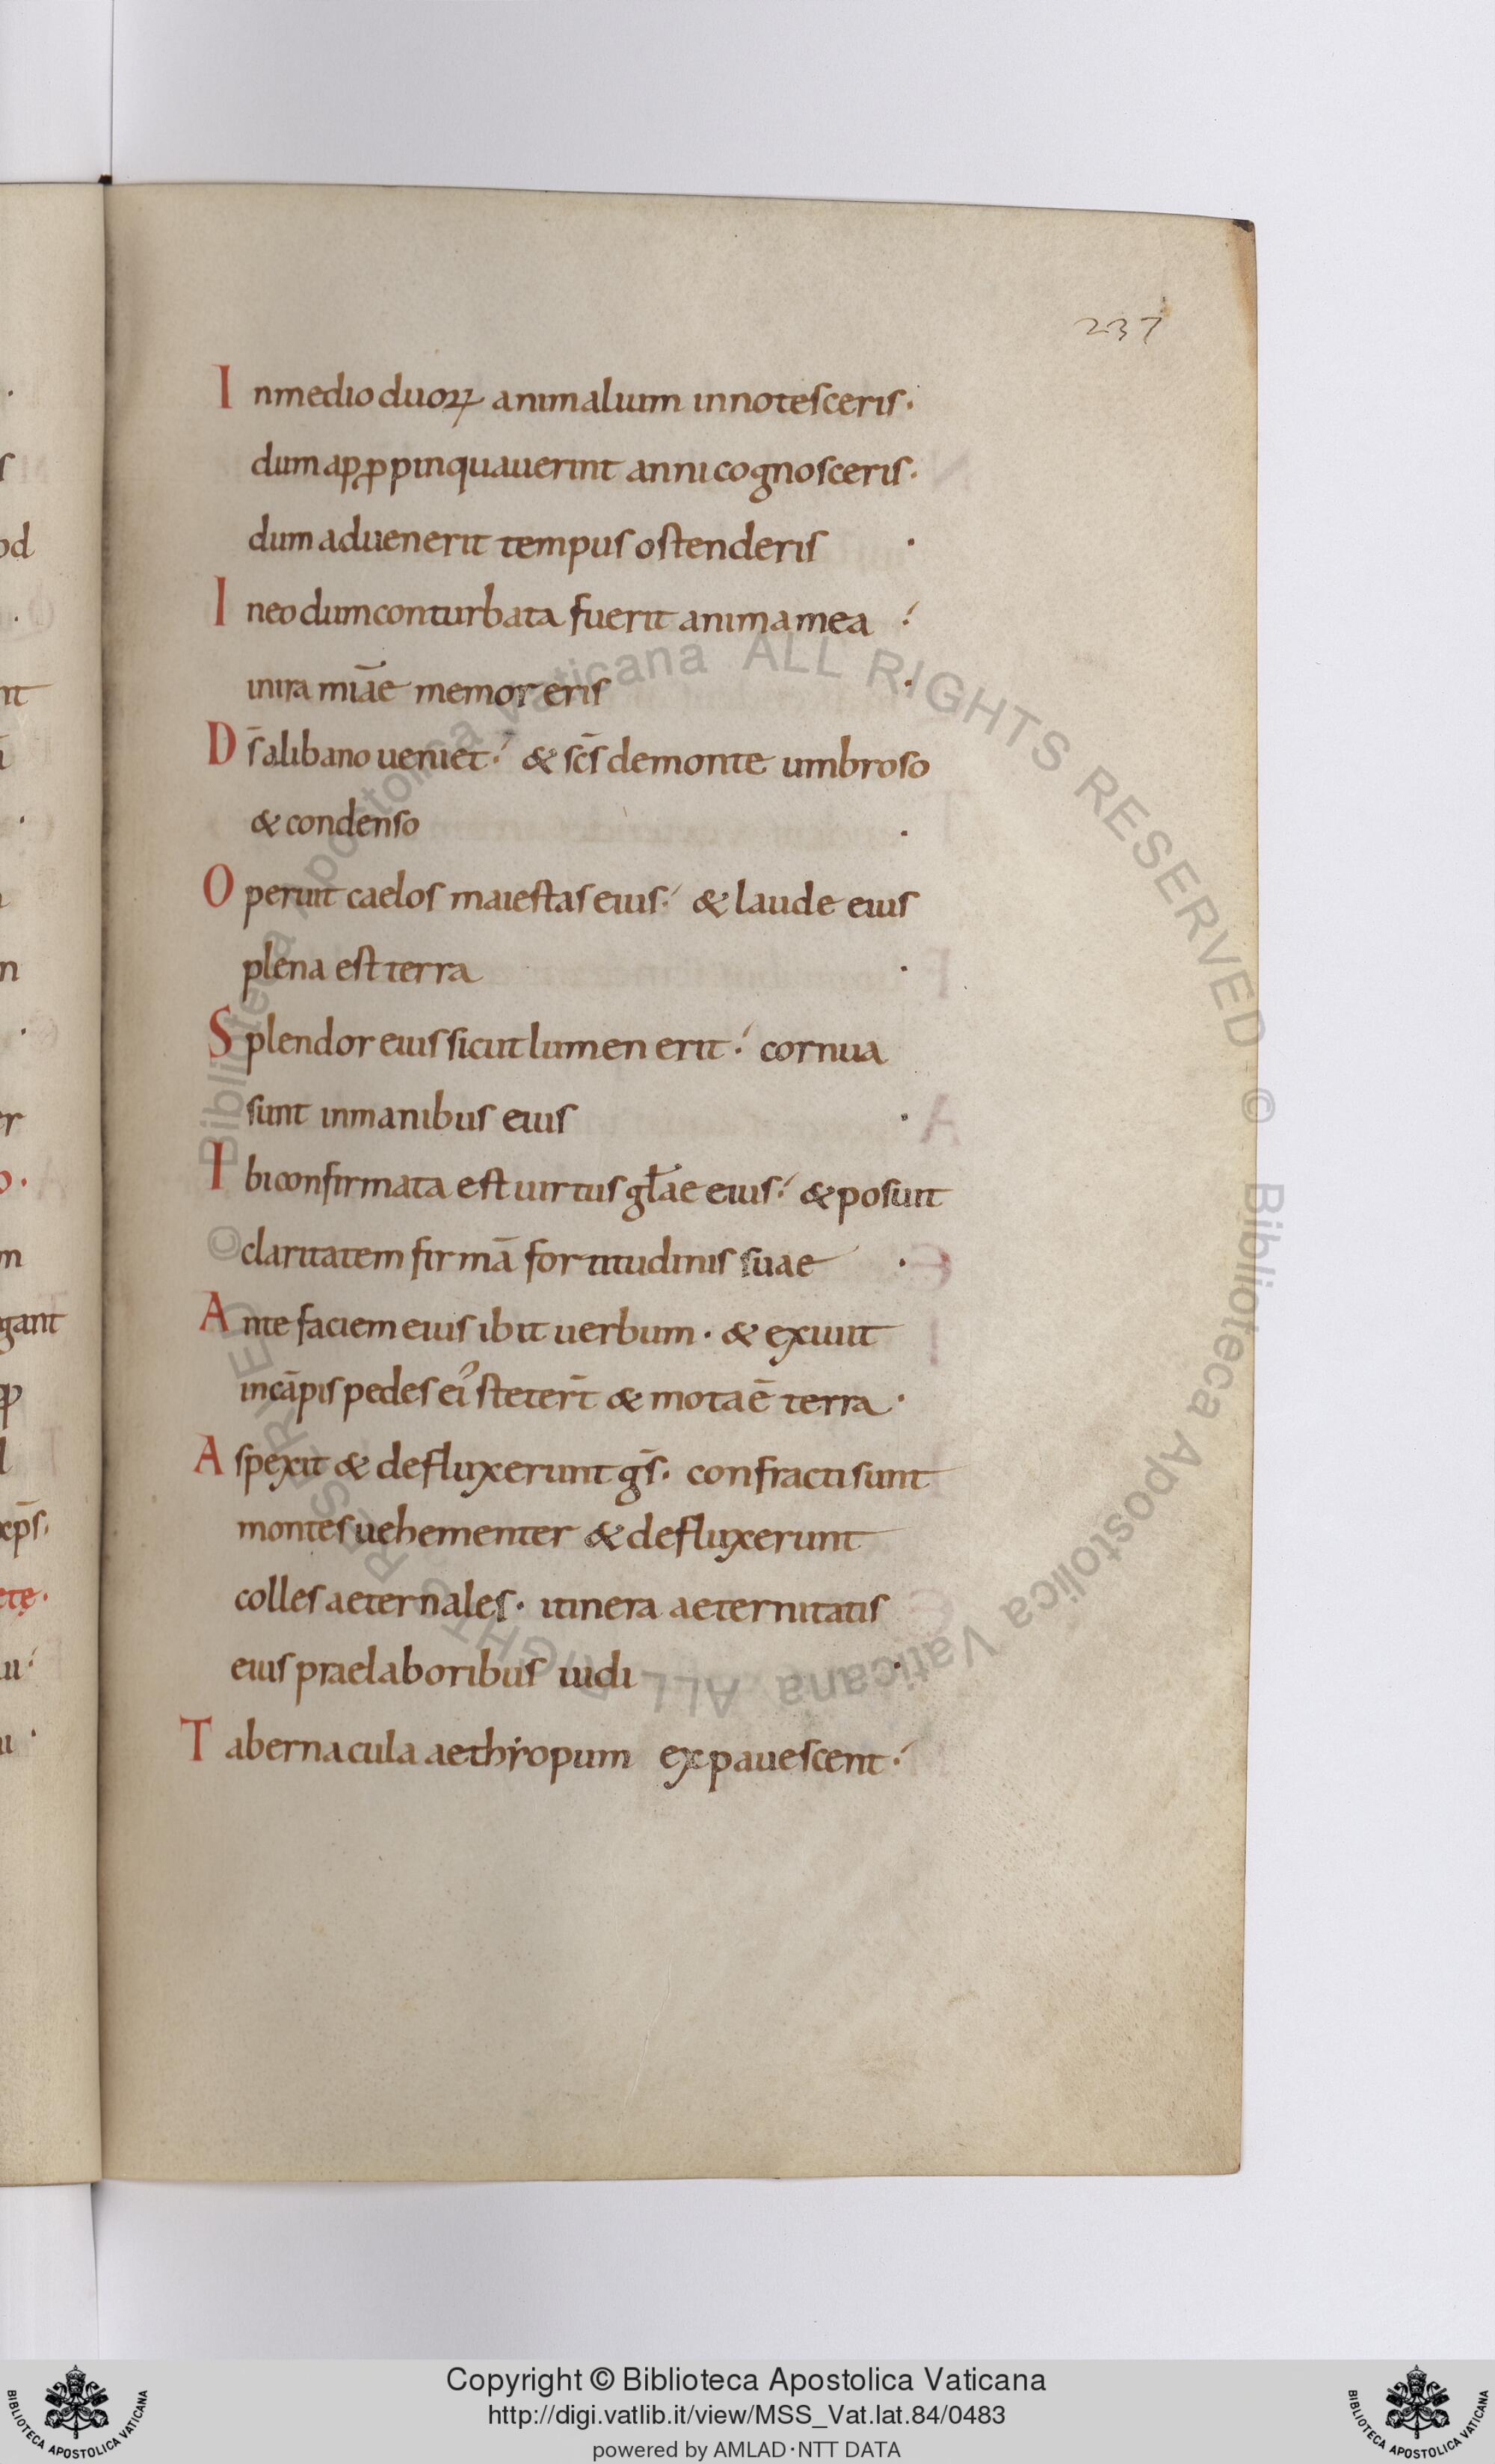 237
In medio duoꝝ animalium innotesceris·
dum apꝓpinquauerint anni cognosceris·
dum aduenerit tempus ostenderis ·
In eo dum conturbata fuerit anima mea ·
in ira mi͞ae memor eris ·
D͞s a libano ueniet· & sc͞s de monte umbroso
& condenso ·
Operuit caelos maiestas eius· & laude eius
plena est terra ·
Splendor eius sicut lumen erit· cornua
sunt in manibus eius ·
Ibi confirmata est uirtus gl͞ae eius· & posuit
claritatem firmā fortitudinis suae ·
Ante faciem eius ibit uerbum· & exiuit
in cāpis pedes ei᾿ steter̄t & mota ē terra·
Aspexit & defluxerunt g͞s· confracti sunt
montes uehementer & defluxerunt
colles aeternales· itinera aeternitatis
eius prae laboribus uidi ·
Tabernacula aethiopum expauescent·
s
od
nt
n
er
o·
m
gant
ꝓ
l
xp͞s·
u
© Biblioteca Apostolica Vaticana ALL RIGHTS RESERVED © Biblioteca Apostolica Vaticana ALL RIGHTS RESERVED
Copyright © Biblioteca Apostolica Vaticana
http://digi.vatlib.it/view/MSS_Vat.lat.84/0483
powered by AMLAD·NTT DATA
BIBLIOTECA APOSTOLICA VATICANA
BIBLIOTECA APOSTOLICA VATICANA